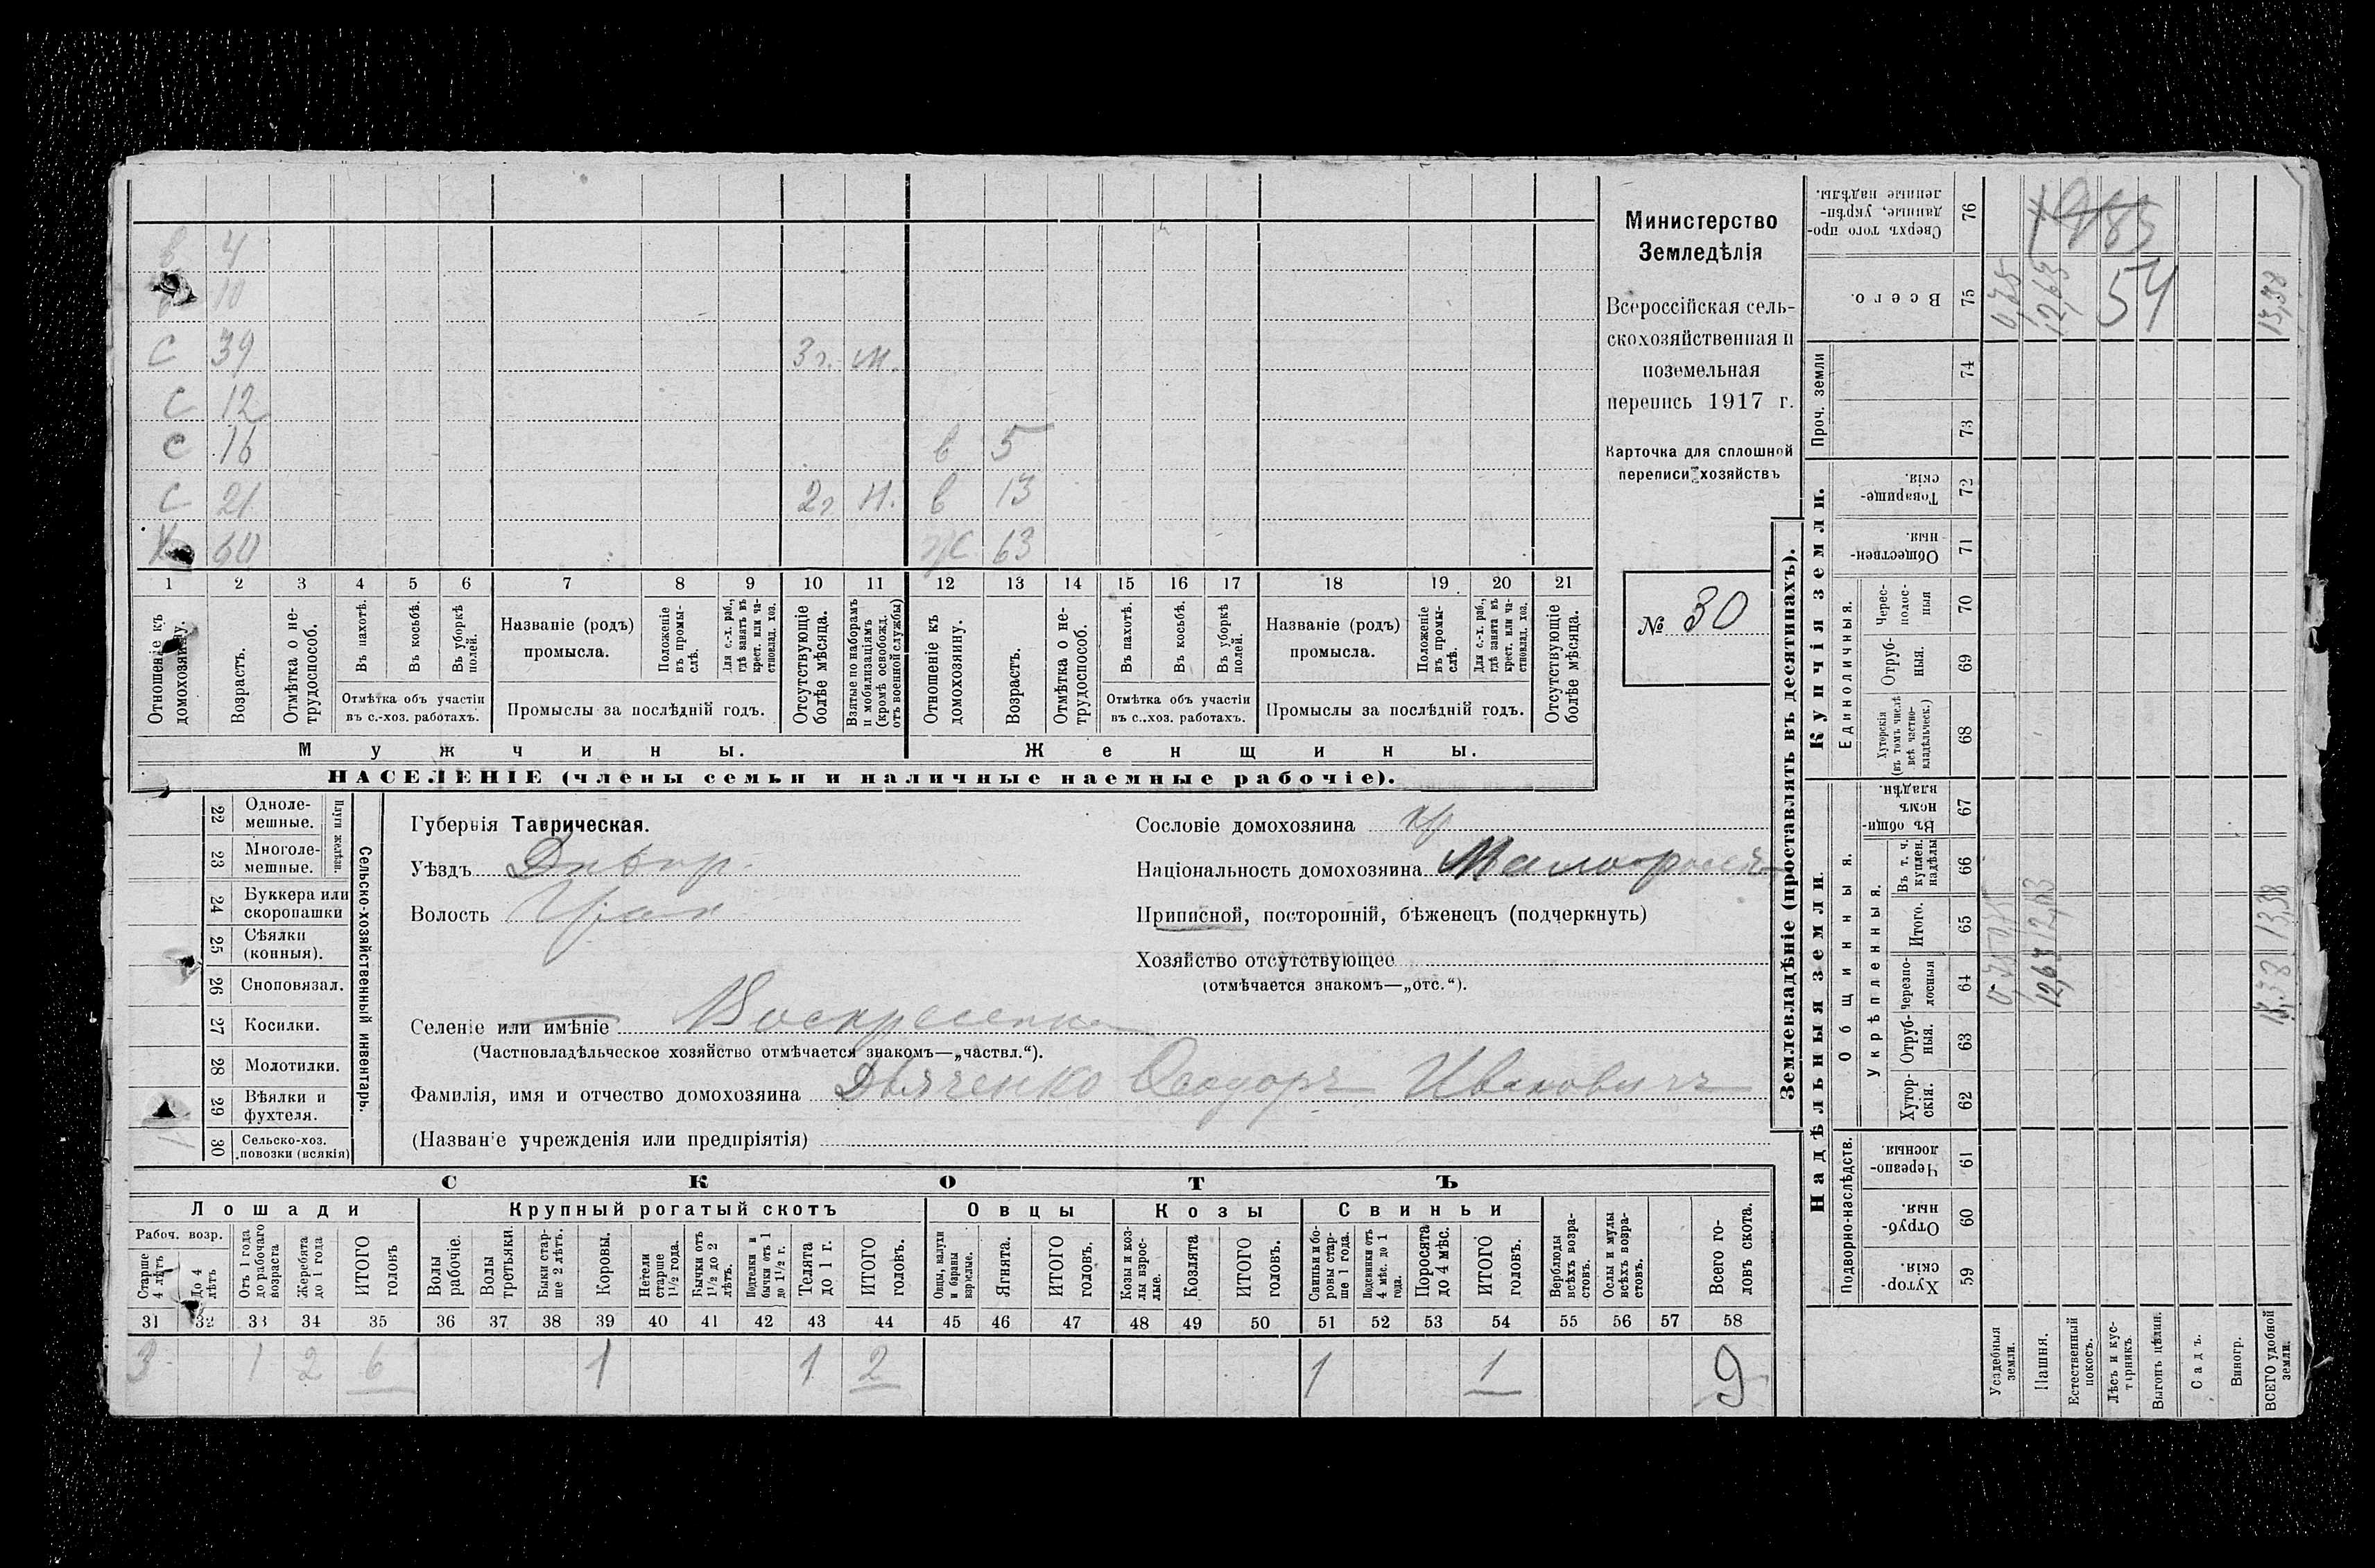 в 4
10
С 39 3 г. М.
С 12
С 16 в 5
С 21 2 г Н. в 13
Х 60 Ж 63
1 2 3 4 5 6 7 8 9 10 11 12 13 14 15 16 17 18 19 20 21
Отношеніе къ домохозяину.
Возрастъ.
Отмѣтка о не-трудоспособ.
Въ пахотѣ.
Въ косьбѣ.
Въ уборкѣ полей.
Отмѣтка объ участіи
въ с.-хоз. работахъ.
Названіе (родъ)
промысла.
Положеніе въ промы-слѣ.
Для с.-х. раб., гдѣ занятъ въ крест. или ча-стновлад. хоз.
Промыслы за послѣдній годъ.
Отсутствующіе болѣе мѣсяца.
Взятые по наборамъ и мобилизаціямъ (кромѣ освобожд. отъ военной службы)
Отношеніе къ домохозяину.
Возрастъ.
Отмѣтка о не-трудоспособ.
Въ пахотѣ.
Въ косьбѣ.
Въ уборкѣ полей.
Отмѣтка объ участіи
въ с.-хоз. работахъ.
Названіе (родъ)
промысла.
Положеніе въ промы-слѣ.
Для с.-х. раб., гдѣ занята въ крест. или ча-стновлад. хоз.
Промыслы за послѣдній годъ.
Отсутствующіе болѣе мѣсяца.
Мужчины. Женщины.
НАСЕЛЕНІЕ (члены семьи и наличные наемные рабочіе).
Министерство
Земледѣлія
Всероссійская сель-
скохозяйственная и
поземельная
перепись 1917 г.
Карточка для сплошной
переписи хозяйствъ
№ 30
Сельско-хозяйственный инвентарь.
Плуги желѣзн.
22 Одноле-мешные.
23 Многоле-мешные.
24 Буккера или скоропашки
25 Сѣялки (конныя).
26 Сноповязал.
27 Косилки.
28 Молотилки.
29 Вѣялки и фухтеля.
30 Сельско-хоз. повозки (всякія)
1
Губернія Таврическая.
Уѣздъ Днѣпр.
Волость
Селеніе или имѣніе Воскресенка
(Частновладѣльческое хозяйство отмѣчается знакомъ—„частвл.“).
Фамилія, имя и отчество домохозяина Дьяченко Ѳеодоръ Ивановичъ
(Названіе учрежденія или предпріятія)
Сословіе домохозяина кр
Національность домохозяина Малоросс
Приписной, посторонній, бѣженецъ (подчеркнуть)
Хозяйство отсутствующее
(отмѣчается знакомъ—„отс.“).
СКОТЪ
Лошади Крупный рогатый скотъ Овцы Козы Свиньи
Рабоч. возр.
Старше 4 лѣтъ
До 4 лѣтъ
Отъ 1 года до рабочаго возраста
Жеребята до 1 года
ИТОГО головъ
Волы рабочіе.
Волы третьяки.
Быки стар-ше 2 лѣтъ.
Коровы.
Нетели старше 1½ года.
Бычки отъ 1½ до 2 лѣтъ.
Подтелки и бычки отъ 1 до 1½ г.
Телята до 1 г.
ИТОГО головъ.
Овцы, валухи и бараны взрослые.
Ягнята.
ИТОГО головъ.
Козы и коз-лы взрос-лые.
Козлята
ИТОГО головъ.
Свиньи и бо-ровы стар-ше 1 года.
Подсвинки отъ 4 мѣс. до 1 года.
Поросята до 4 мѣс.
ИТОГО головъ.
Верблюды всѣхъ возра-стовъ.
Ослы и мулы всѣхъ возра-стовъ.
Всего го-ловъ скота.
31 32 33 34 35 36 37 38 39 40 41 42 43 44 45 46 47 48 49 50 51 52 53 54 55 56 57 58
3 1 2 6 1 1 2 1 1 9
Землевладѣніе (проставлять въ десятинахъ).
Надѣльныя земли. Купчія земли. Проч. земли
Подворно-наслѣдств.
Общинныя.
Укрѣпленныя.
Единоличныя.
Хутор-скія. 59
Отруб-ныя. 60
Черезпо-лосныя. 61
Хутор-скія. 62
Отруб-ныя. 63
Черезпо-лосныя 64
Итого. 65
Въ т. ч. куплен. надѣлы 66
Въ общин-номъ владѣн. 67
Хуторскія (въ томъ числѣ всѣ частно-владѣльческ.) 68
Отруб-ныя. 69
Черес-полос-ныя 70
Обществен-ныя. 71
Товарище-скія. 72
73
74
Всего. 75
Сверхъ того про-данные, укрѣп-ленные надѣлы. 76
Усадебныя земли. 0,75 0,75 0,75
Пашня. 12,63 12,63 12,63
Естественный покосъ.
Лѣсъ и кус-тарникъ.
Выгонъ цѣлин.
Садъ.
Виногр.
ВСЕГО удобной земли. 13,38 13,38 13,38
54